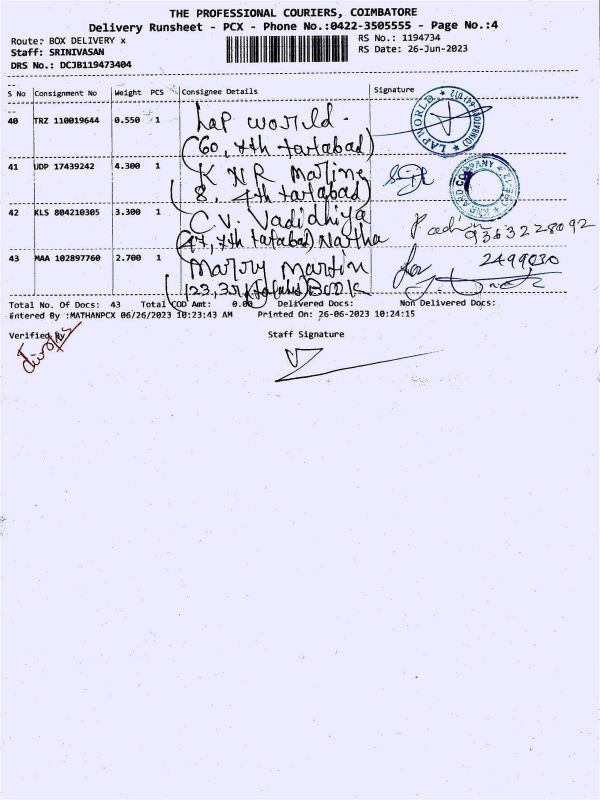 THE PROFESSIONAL COURIERS, COIMBATORE
Delivery Runsheet - PCX - Phone No.:0422-3505555 - Page No.:4
Route: BOX DELIVERY x RS No.: 1194734
Staff: SRINIVASAN RS Date: 26-Jun-2023
DRS No.: DCJB119473404
S No Consignment No Weight PCS Consignee Details Signature
40 TRZ 110019644 0.550 1 Lap world -
(60, 7th tatabad)
LAP WORLD
41 UDP 17439242 4.300 1 K N R Marine
(8, 4th tatabad)
KNR AND COMPANY
42 KLS 804210305 3.300 1 C. V. Vadidhiya
(47, 7th tatabad) Nartha
9363228092
43 MAA 102897760 2.700 1 Marry Martin
(123, 3rd tatabad) Book
for 2499030
Total No. Of Docs: 43 Total COD Amt: 0.00 Delivered Docs: Non Delivered Docs:
Entered By :MATHANPCX 06/26/2023 10:23:43 AM Printed On: 26-06-2023 10:24:15
Verified By Staff Signature